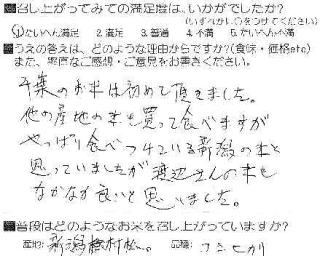 ■召し上がってみての満足度は、いかがでしたか?
(いずれかに○をつけてください)
①たいへん満足 2.満足 3.普通 4.不満 5.たいへん不満
■うえの答えは、どのような理由からですか?(食味・価格etc)
また、率直なご感想・ご意見をお書きください。
千葉のお米は初めて頂きました。
他の産地の米も買って食べますが
やっぱり食べつけている新潟の米と
思っていましたが渡辺さんの米も
なかなか良いと思いました。
■普段はどのようなお米を召し上がっていますか?
産地: 新潟 村松。 品種: コシヒカリ